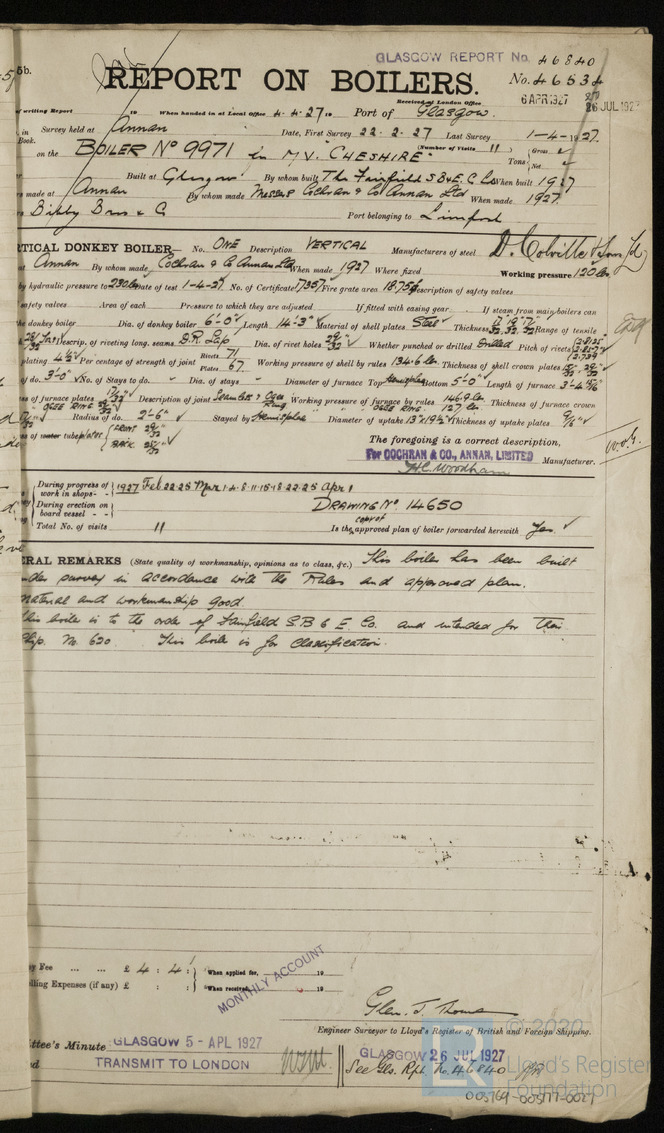 GLASGOW REPORT No. 46840
5b. REPORT ON BOILERS. No. 46534
Received at London Office 6 APR 1927 26 JUL 192
writing Report 19 When handed in at Local Office 4.4.27 19 Port of Glasgow.
in Survey held at Annan Date, First Survey 22.2.27 Last Survey 1-4-1927.
Book. (Number of Visits 11) Gross
on the BOILER No 9971 in M.V. "CHESHIRE" Tons Net
Built at Glasgow By whom built The Fairfield S.B & E. C Ld When built 1927
made at Annan By whom made Messrs Cochran & Co Annan Ltd When made 1927.
Bibby Bros & Co Port belonging to Liverpool
RTICAL DONKEY BOILER— No. ONE Description VERTICAL Manufacturers of steel D. Colville & Sons Ld
at Annan By whom made Cochran & Co Annan Ltd When made 1927 Where fixed Working pressure 120 lbs
by hydraulic pressure to 230 lbs Date of test 1-4-27 No. of Certificate 17357 Fire grate area 18.75 Description of safety valves
safety valves Area of each Pressure to which they are adjusted If fitted with easing gear If steam from main boilers can
the donkey boiler Dia. of donkey boiler 6'-0" Length 14'-3" Material of shell plates Steel Thickness Range of tensile
Descrip. of riveting long. seams D.R. Lap Dia. of rivet holes 29/32" Whether punched or drilled Drilled Pitch of rivets
plating 4½" Per centage of strength of joint Rivets 71 Plates 67 Working pressure of shell by rules 134.6 lbs Thickness of shell crown plates
of do. 3'-0" No. of Stays to do. Dia. of stays Diameter of furnace Top Hemisphere Bottom 5'-0" Length of furnace
of furnace plates Description of joint Seamless & Ogee Ring Working pressure of furnace by rules 146.9 lbs Thickness of furnace crown
OGEE RING OGEE RING. 127 lbs
Radius of do. 2'-6" Stayed by Hemisphere Diameter of uptake Thickness of uptake plates 9/16"
of water tube plates FRONT 29/32 BACK
The foregoing is a correct description,
For COCHRAN & CO., ANNAN, LIMITED Manufacturer.
H.C. Woodham
During progress of work in shops - - 1927 Feb 22.25 Mar 1.4.8.11.15.18.22.25 Apr 1
During erection on board vessel - -
DRAWING No. 14650
Total No. of visits 11 Is the copy of approved plan of boiler forwarded herewith Yes.
ERAL REMARKS (State quality of workmanship, opinions as to class, &c.) This boiler has been built
under survey in accordance with the Rules and approved plan.
material and workmanship good.
This boiler is to the order of Fairfield S.B & E Co. and intended for their
Ship. No. 620. This boiler is for classification.
ey Fee ... ... £ 4 : 4 : When applied for, 19
elling Expenses (if any) £ : : When received, 19
MONTHLY ACCOUNT
Engineer Surveyor to Lloyd's Register of British and Foreign Shipping.
ittee's Minute GLASGOW 5 - APL 1927 GLASGOW 26 JUL 1927
TRANSMIT TO LONDON See Gls. Rpt. No. 46840
© 2020
LR Lloyd's Register Foundation
003769-003777-0027